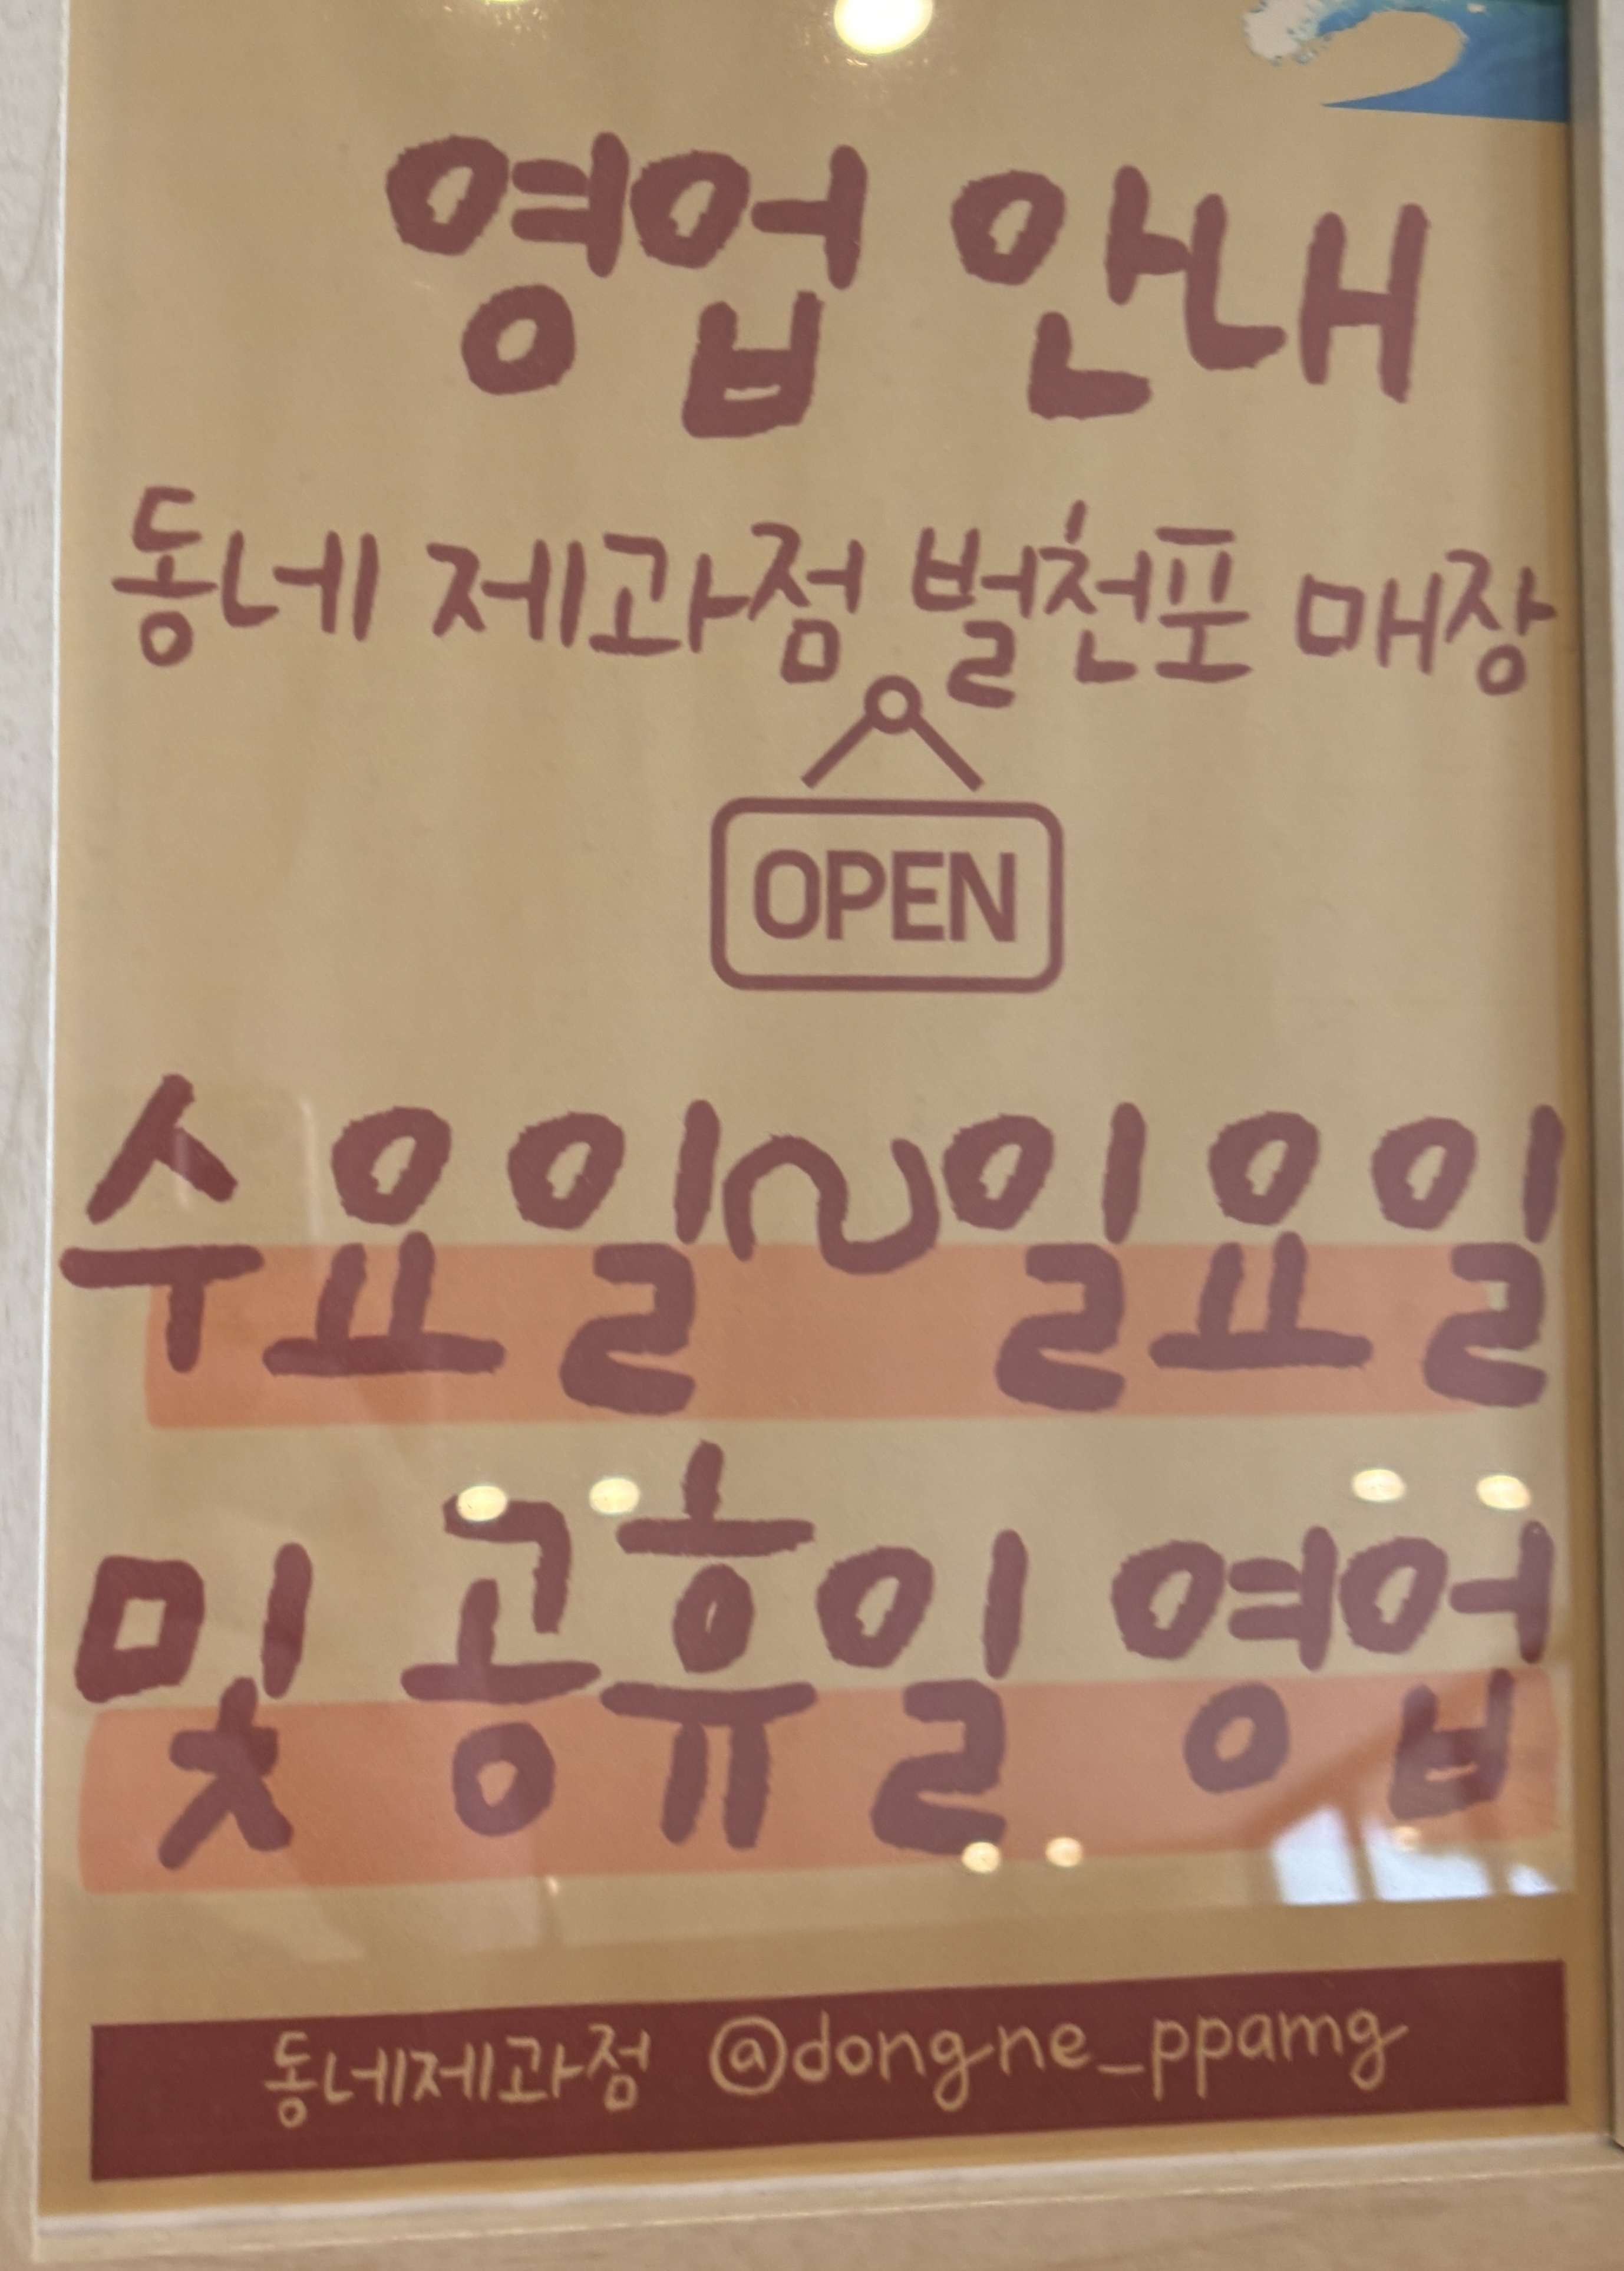 영업 안내
동네 제과점 벌천포 매장
OPEN
수요일~일요일
및 공휴일 영업
동네제과점 @dongne_ppamg